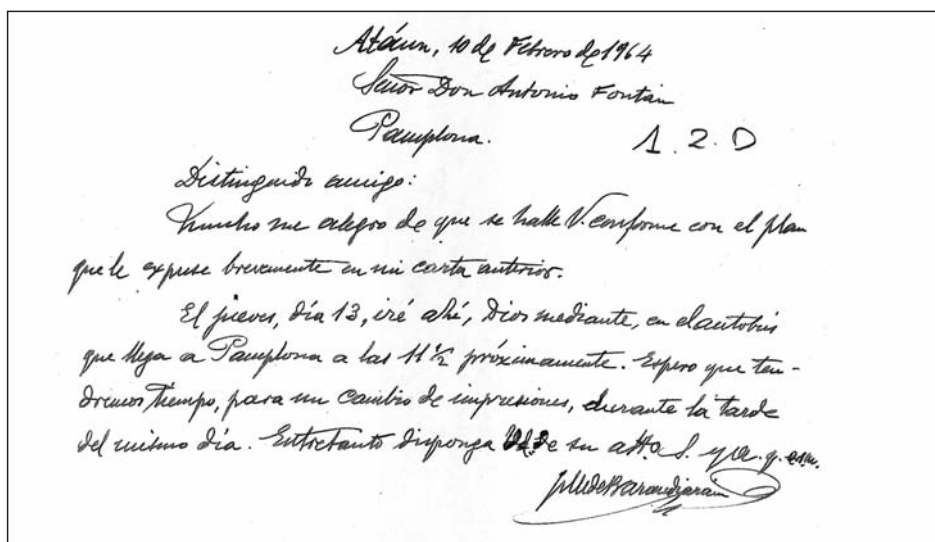 Atáun, 10 de Febrero de 1964
Señor Don Antonio Fontán
Pamplona.
1.2.D
Distinguido amigo:
Mucho me alegro de que se halle V. conforme con el plan
que le expuse brevemente en mi carta anterior.
El jueves, día 13, iré ahí, Dios mediante, en el autobús
que llega a Pamplona a las 11 ½ próximamente. Espero que ten-
dremos tiempo, para un cambio de impresiones, durante la tarde
del mismo día. Entretanto disponga de su atto. S. y a. q. e. s. m.
J M de Barandiarain